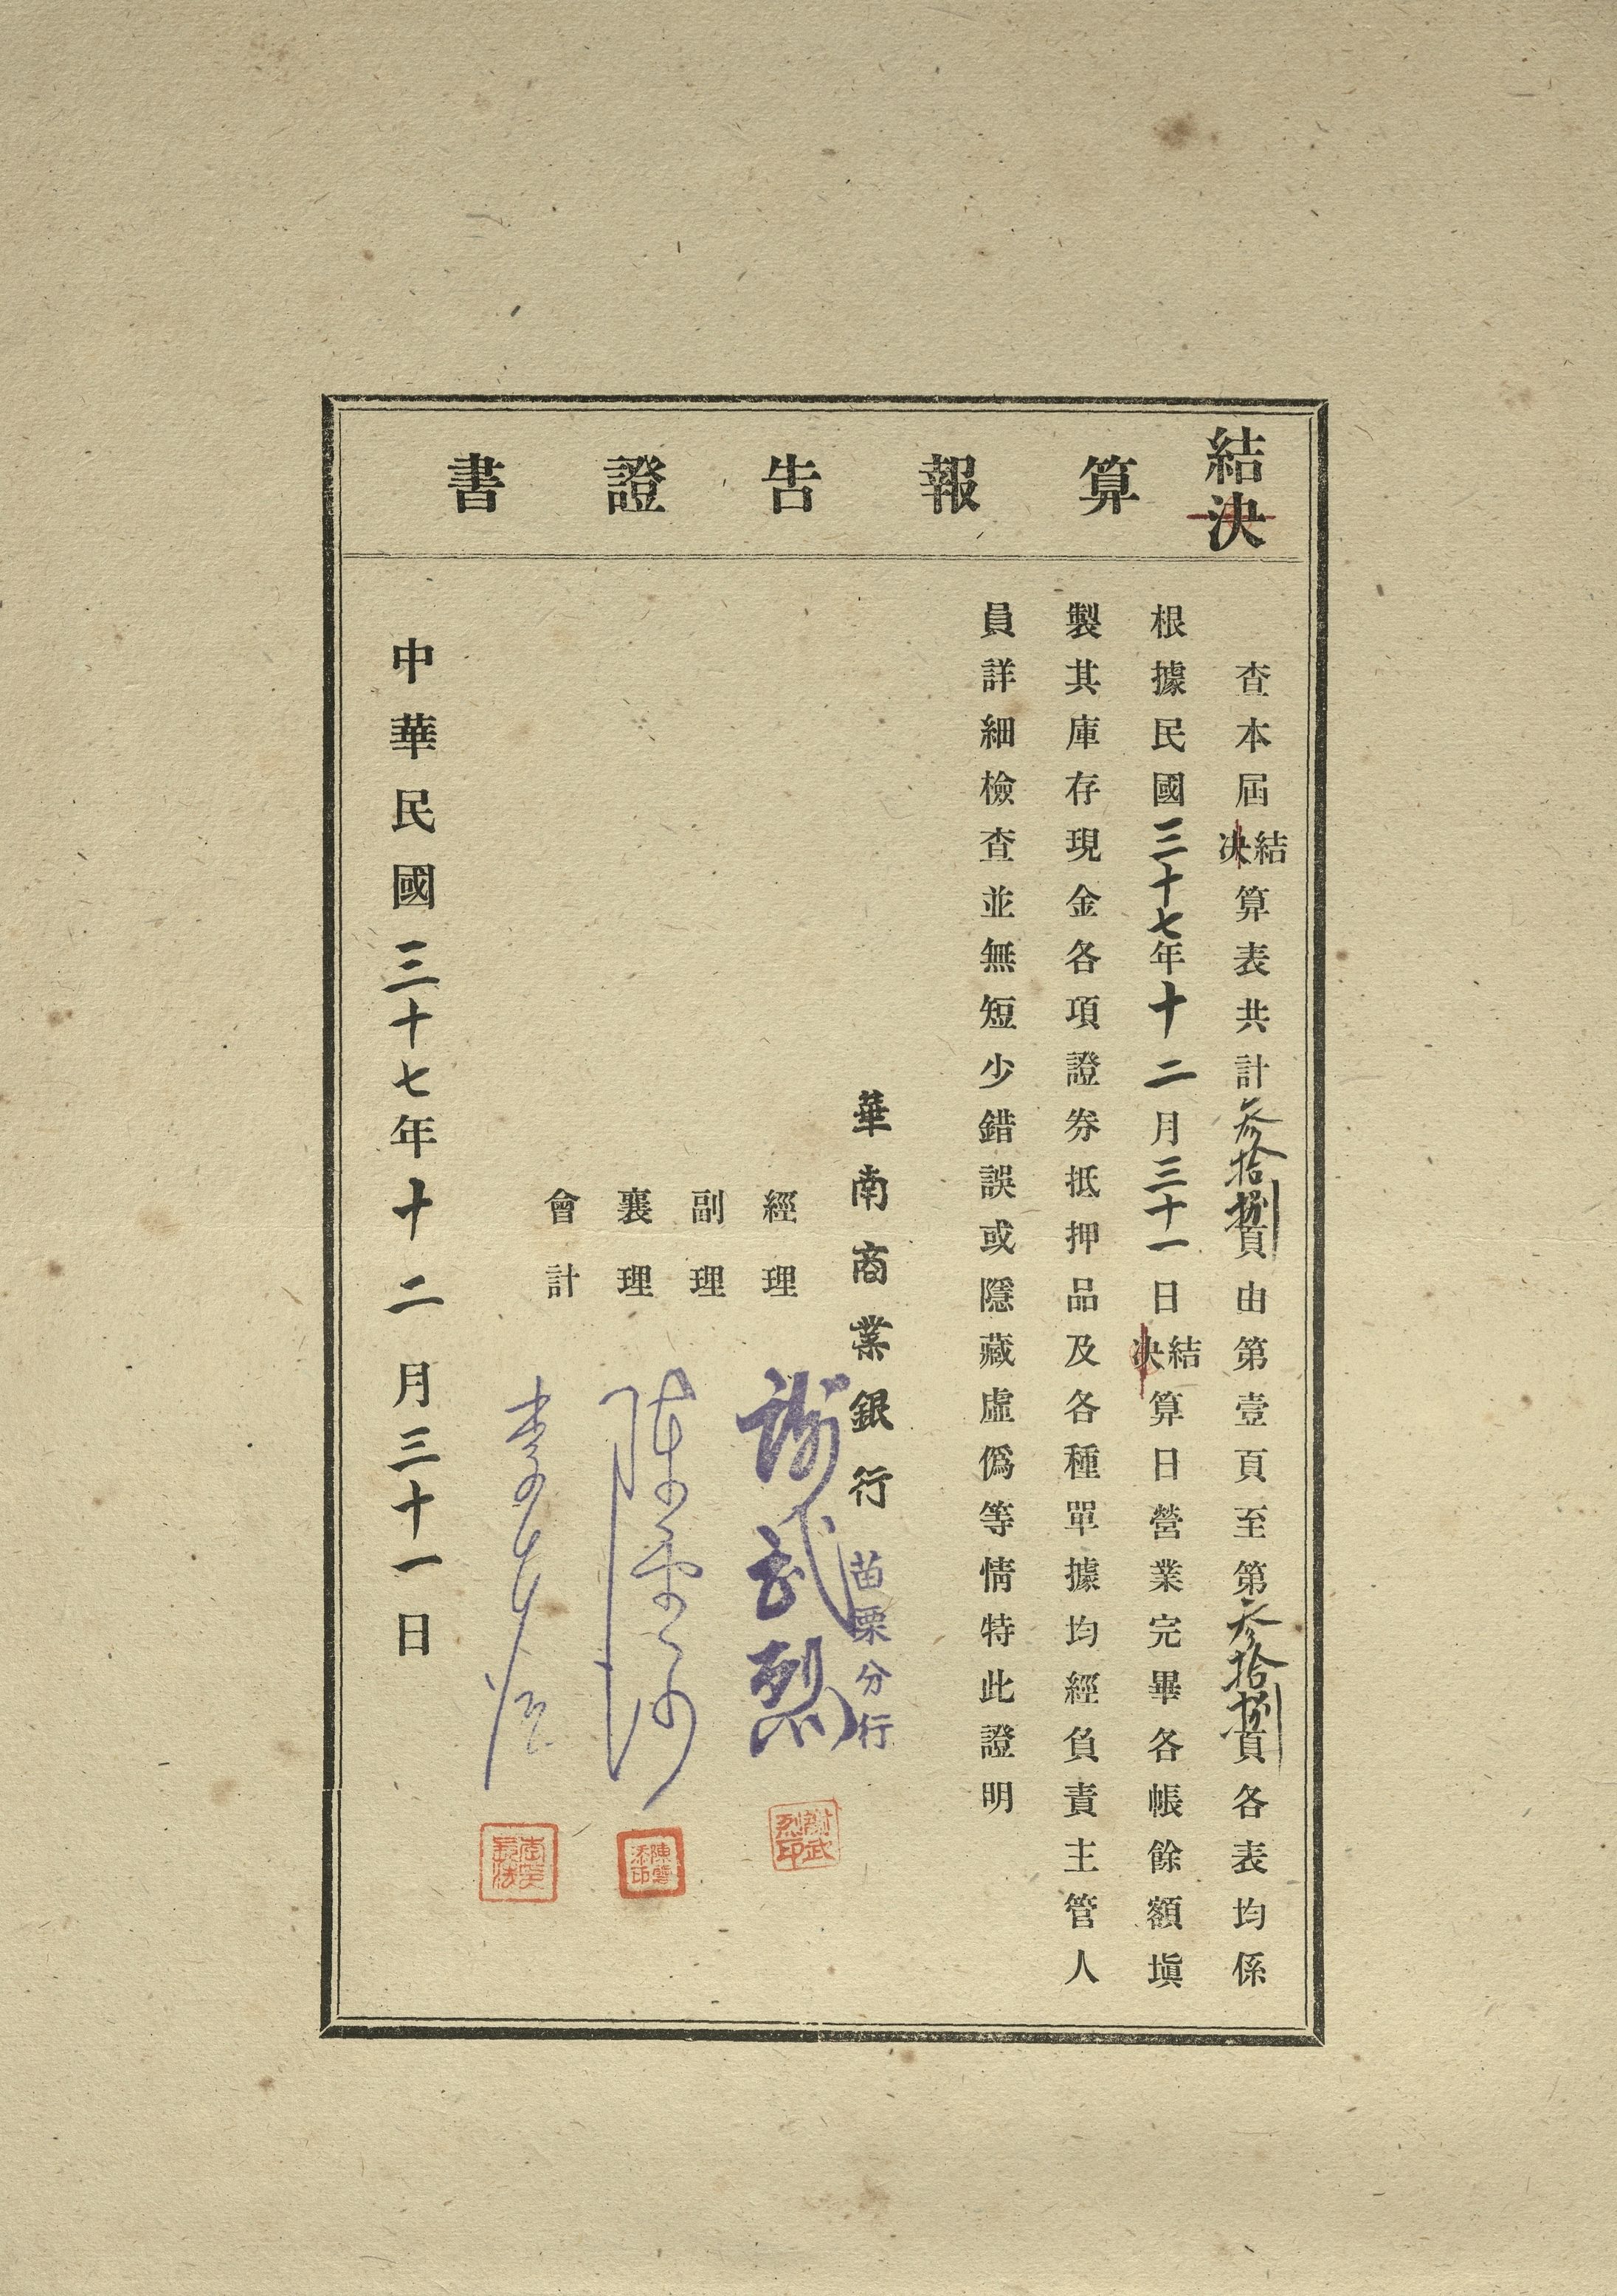 結決算報告證書
查本屆結決算表共計叁拾捌頁由第壹頁至第叁拾捌頁各表均係
根據民國三十七年十二月三十一日結決算日營業完畢各帳餘額塡
製其庫存現金各項證券抵押品及各種單據均經負責主管人
員詳細檢查並無短少錯誤或隱藏虛僞等情特此證明
華南商業銀行苗栗分行
經理 謝武烈
謝武烈印
副理
襄理 陳雲添
陳雲添印
會計
中華民國三十七年十二月三十一日